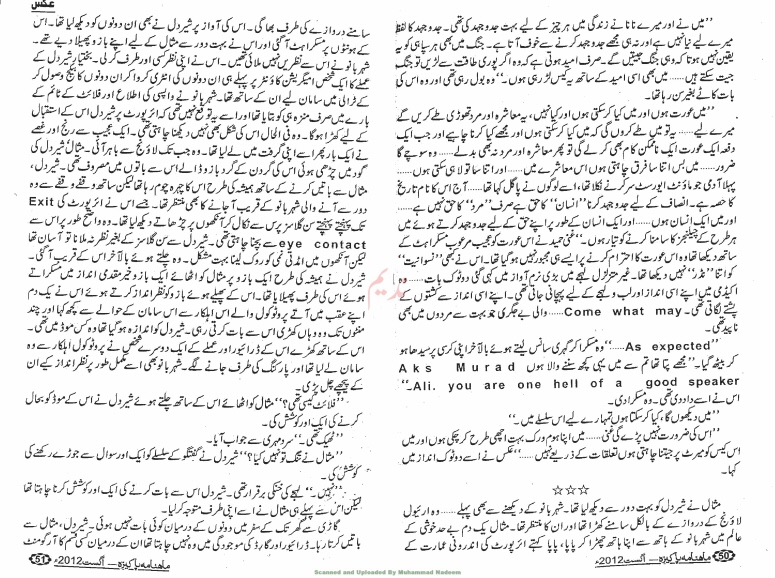 عکس
’’میں نے اور میرے نانا نے زندگی میں ہر چیز کے لیے بہت جدوجہد کی تھی۔ جدوجہد کا لفظ
میرے لیے نیا نہیں ہے اور نہ ہی مجھے جدوجہد کرنے سے خوف آتا ہے۔ جنگ میں بھی ہر سپاہی کو یہ
یقین نہیں ہوتا کہ وہی جنگ جیتیں گے۔ صرف امید ہوتی ہے کہ وہ اگر پوری طاقت سے لڑیں تو جنگ
جیت سکتے ہیں ...... میں بھی اسی امید کے ساتھ یہ کیس لڑ رہی ہوں۔‘‘ وہ بول رہی تھی اور وہ اس کی
بات کاٹے بغیر سن رہا تھا۔
’’میں عورت ہوں اور میں کیا کر سکتی ہوں اور کیا نہیں، یہ معاشرہ اور مرد تھوڑی طے کریں گے
میرے لیے ...... یہ تو میں طے کروں گی کہ میں کیا کر سکتی ہوں اور مجھے کیا کرنا چاہیے اور جب ایک
دفعہ ایک عورت ایک ناممکن کام بھی کر لے گی تو پھر معاشرہ اور مرد نہ بھی بدلے ...... وہ سوچے گا
ضرور ...... میں بس اتنا سا فرق چاہتی ہوں اس معاشرے میں ...... اور اتنا سا تو لا سکتی ہوں ......
پہلا آدمی جو ماؤنٹ ایورسٹ سر کرنے نکلا تھا، اسے لوگوں نے پاگل کہا تھا ...... آج اس کا نام تاریخ
کا حصہ ہے۔ انصاف کے لیے جدوجہد کرنا ’’انسان‘‘ کا حق ہے صرف ’’مرد‘‘ کا حق نہیں ہے ......
اور میں ایک انسان ہوں ...... اور ایک انسان کے طور پر اپنے حق کے لیے جدوجہد کرتے ہوئے میں
ہر طرح کے چیلنجز کا سامنا کرنے کو تیار ہوں۔‘‘ غنی حمید نے اس عورت کو عجیب مرعوب مسکراہٹ کے
ساتھ دیکھا تھا وہ اس عورت کا احترام کرنے پر ایسے ہی مجبور نہیں ہو گیا تھا۔ اس نے بھی ’’نسوانیت‘‘
کو اتنا ’’نڈر‘‘ نہیں دیکھا تھا۔ غیر متزلزل لہجے میں بڑی نرم آواز میں کہی گئی دوٹوک بات ...... وہ
اکیڈمی میں اپنے اسی انداز اور لب و لہجے کے لیے پہچانی جاتی تھی۔ اپنے اسی انداز سے کشتوں کے
پشتے لگاتی تھی۔ Come what may ...... والی بے جگری جو بہت سے مردوں میں بھی
ناپید تھی۔
’’As expected ......‘‘ وہ مسکرا کر گہری سانس لیتے ہوئے بالآخر اپنی کرسی پر سیدھا ہو
کر بیٹھ گیا۔ ’’مجھے پتا تھا تم سے میں یہی کچھ سننے والا ہوں Aks Murad
Ali. you are one hell of a good speaker‘‘
اس نے اسے داد دی تھی۔ وہ مسکرا دی۔
’’میں دیکھوں گا، کیا کر سکتا ہوں تمہارے لیے اس سلسلے میں۔‘‘
’’اس کی ضرورت نہیں پڑے گی غنی ...... میں اپنا ہوم ورک بہت اچھی طرح کر چکی ہوں اور میں
اس کیس کو میرٹ پر جیتنا چاہتی ہوں تعلقات کے ذریعے نہیں ......‘‘ عکس نے اسے دوٹوک انداز میں
کہا۔
☆☆☆
مثال نے شیر دل کو بہت دور سے دیکھ لیا تھا۔ شہربانو کے دیکھنے سے بھی پہلے ...... وہ ارائیول
لاؤنج کے دروازے کے بالکل سامنے کھڑا تھا اور ان کا منتظر تھا۔ مثال یک دم بے حد خوشی کے
عالم میں شہربانو کے ہاتھ سے اپنا ہاتھ چھڑا کر پاپا، پاپا کہتے ائرپورٹ کی اندرونی عمارت کے
ماہنامہ پاکیزہ ــ اگست 2012ء 50
سامنے دروازے کی طرف بھاگی۔ اس کی آواز پر شیر دل نے بھی ان دونوں کو دیکھ لیا تھا۔ اس
کے ہونٹوں پر مسکراہٹ آگئی اور اس نے بہت دور سے مثال کے لیے اپنے بازو پھیلا دیے تھے۔
شہربانو نے اس سے نظریں نہیں ملائی تھیں۔ اس نے اپنی نظر کسی اور طرف کر لی۔ بختیار شیر دل کے
عملے کا ایک شخص امیگریشن کاؤنٹر پر پہلے ہی ان دونوں کی انٹری کروا کر ان دونوں کا بیگیج وصول کر
کے ٹرالی میں سامان لیے ان کے ساتھ تھا۔ شہربانو نے واپسی کی اطلاع اور فلائٹ کے ٹائم کے
بارے میں صرف منزہ ہی کو بتایا تھا اور اسے یہ توقع نہیں تھی کہ ائرپورٹ پر شیر دل اس کے استقبال
کے لیے کھڑا ہو گا۔ وہ فی الحال اس کی شکل بھی نہیں دیکھنا چاہتی تھی۔ ایک عجیب سے رنج اور غصے
نے ایک بار پھر اسے اپنی گرفت میں لے لیا تھا۔ وہ جب تک لاؤنج سے باہر آئی۔ مثال شیر دل کی
گود میں چڑھی ہوئی اس کی گردن کے گرد بازو ڈالے اس سے باتوں میں مصروف تھی۔ شیر دل،
مثال سے باتیں کرنے کے ساتھ ہمیشہ کی طرح اس کا چہرہ چوم رہا تھا لیکن ساتھ وقفے وقفے سے وہ
دور سے آنے والی شہربانو کے قریب آ جانے کا بھی منتظر تھا۔ جسے اس نے ائرپورٹ کی Exit
تک پہنچتے پہنچتے سن گلاسز پرس سے نکال کر آنکھوں پر چڑھاتے دیکھ لیا تھا۔ وہ واضح طور پر اس سے
eye contact سے بچنا چاہتی تھی۔ شیر دل سے سن گلاسز کے بغیر نظر نہ ملانا تو آسان تھا
لیکن آنکھوں میں امڈتی نمی کو روک لینا بہت مشکل۔ وہ چلتے ہوئے بالآخر اس کے قریب آ گئی۔
شیر دل نے ہمیشہ کی طرح ایک بازو پر مثال کو اٹھائے ایک بازو خیر مقدمی انداز میں مسکراتے
ہوئے اس کی طرف پھیلایا تھا۔ اس کے پھیلے ہوئے بازو کو نظر انداز کرتے ہوئے اس نے یک دم
اپنے عقب میں آتے پروٹوکول والے اس اہلکار سے اس سامان کے حوالے سے کچھ کہا اور چند
منٹوں تک وہ وہاں کھڑی اس سے بات کرتی رہی۔ شیر دل کو اندازہ ہو گیا تھا وہ کس موڈ میں تھی۔
اس کے ساتھ کھڑے اس کے ڈرائیور اور عملے کے ایک دوسرے شخص نے پروٹوکول اہلکار سے وہ
سامان لے لیا تھا اور پارکنگ کی طرف جانے لگے۔ شہربانو بھی اسے مکمل طور پر نظر انداز کیے ان
کے پیچھے چل پڑی۔
’’فلائٹ کیسی تھی؟‘‘ مثال کو اٹھائے اس کے ساتھ چلتے ہوئے شیر دل نے اس کے موڈ کو بحال
کرنے کی ایک اور کوشش کی۔
’’ٹھیک تھی۔‘‘ سرد مہری سے جواب آیا۔
’’مثال نے تنگ تو نہیں کیا؟‘‘ شیر دل نے گفتگو کے سلسلے کو ایک اور سوال سے جوڑے رکھنے کی
کوشش کی۔
’’نہیں۔‘‘ لہجے کی خنکی برقرار تھی۔ شیر دل اس سے بات کرنے کی ایک اور کوشش کرنا چاہتا تھا
لیکن اس سے پہلے ہی مثال نے اسے اپنی طرف متوجہ کر لیا۔
گاڑی سے گھر تک کے سفر میں دونوں کے درمیان کوئی بات نہیں ہوئی۔ شیر دل، مثال سے
باتیں کرتا رہا۔ ڈرائیور اور گارڈ کی موجودگی میں وہ نہیں چاہتا تھا ان کے درمیان کسی قسم کا آرگومنٹ
ماہنامہ پاکیزہ ــ اگست 2012ء 51
ندیم
Scanned and Uploaded By Muhammad Nadeem